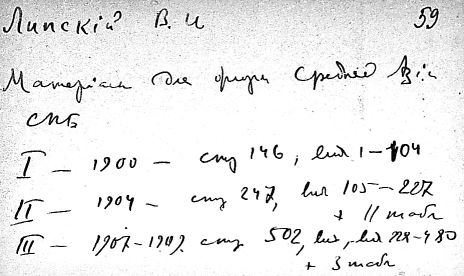 Липскій В. И 59
Матеріалы для флоры Средней Азіи
СПБ
I — 1900 — стр 146, вид 1–104
II — 1904 — стр 247, вид 105–227
+ 11 табл
III — 1907–1909 стр 502, вид 228–480
+ 3 табл